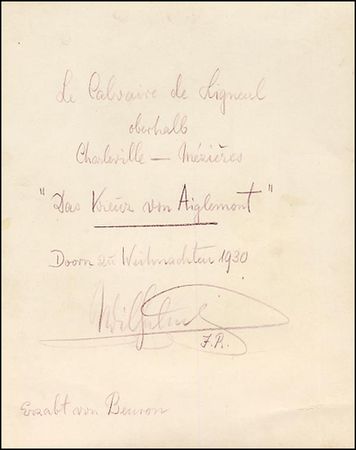 Le Calvaire de Ligneul
oberhalb
Charleville – Mézières
"Das Kreuz von Aiglemont"
Doorn zu Weihnachten 1930
Wilhelm
I.R.
Erzabt von Beuron